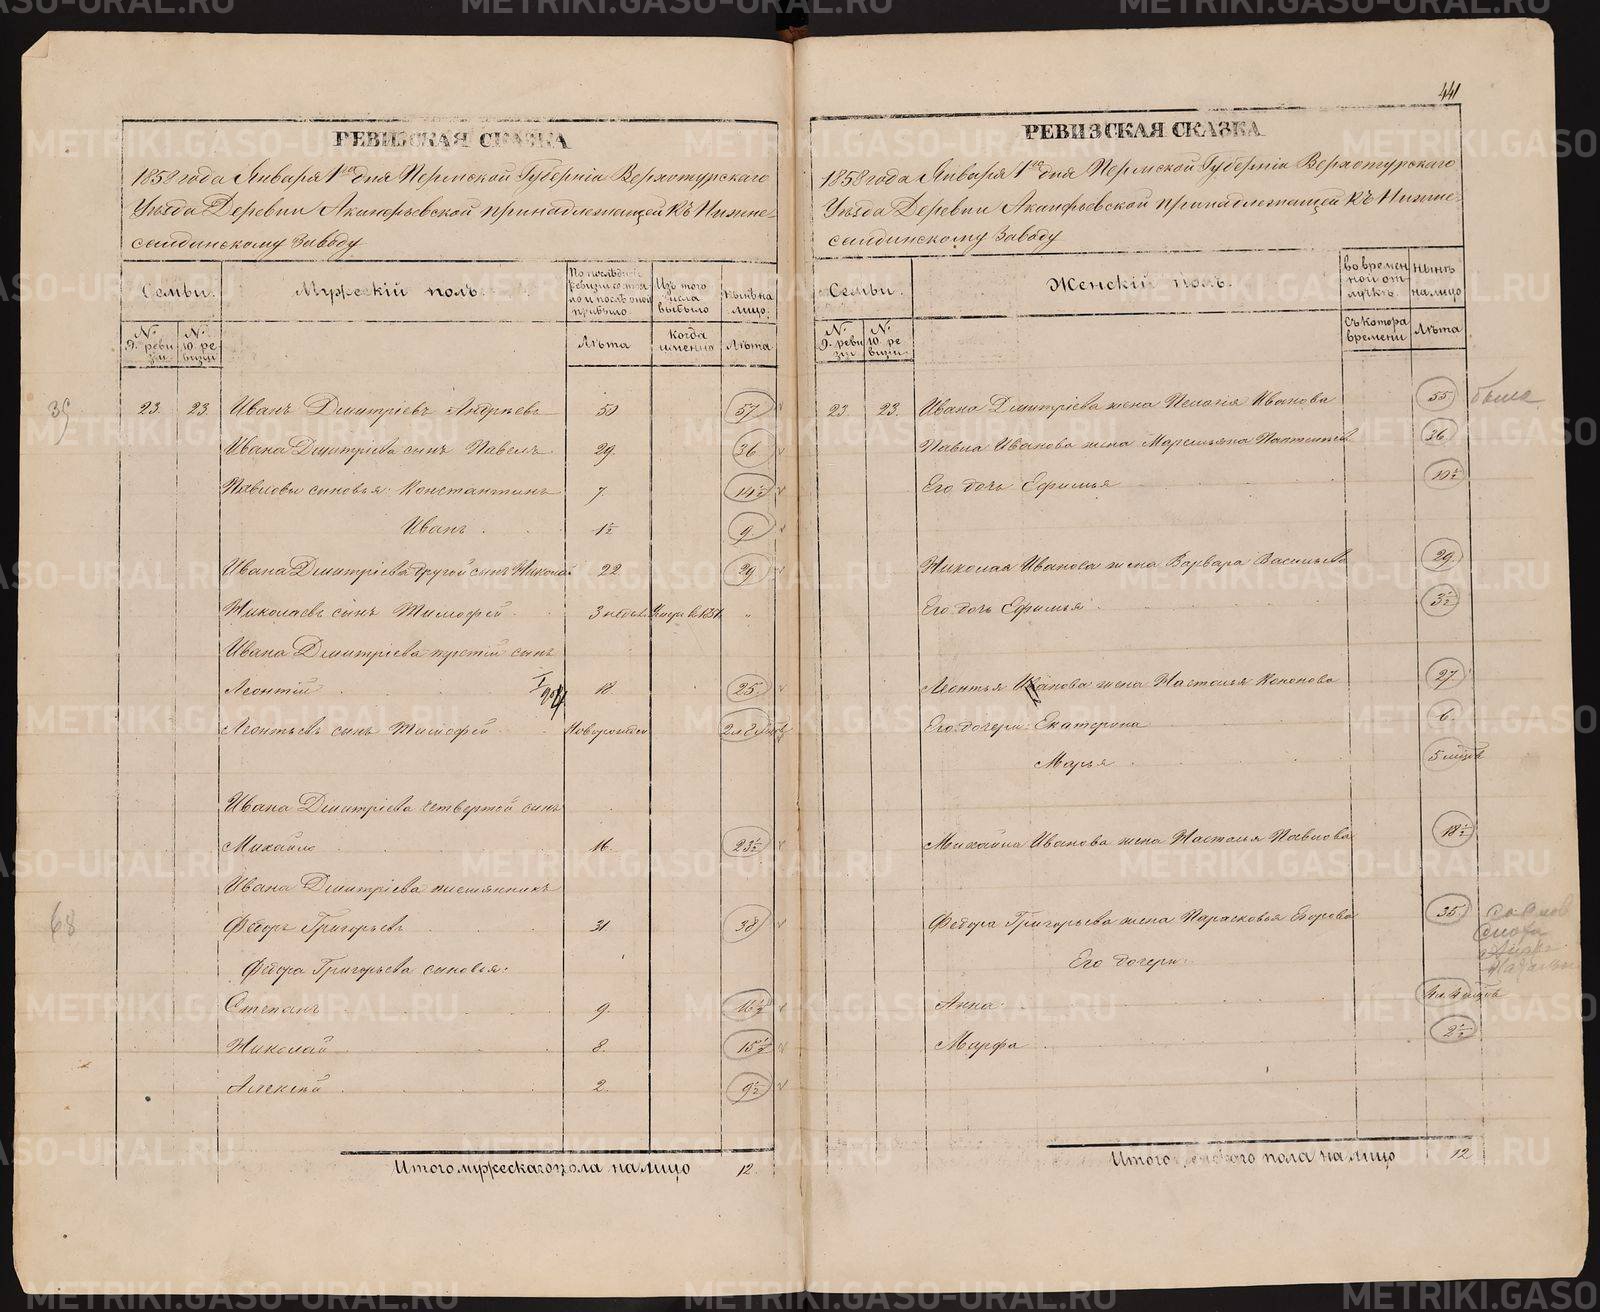 441
РЕВИЗСКАЯ СКАЗКА
1858 года Января 1го дня Пермской Губернiи Верхотурскаго
Уѣзда Деревни Акинфьевской принадлежащей къ Нижне-
салдинскому Заводу
Семьи.
Мужескiй полъ.
По послѣдней ревизiи состояло и послѣ оной прибыло.
Изъ того числа выбыло
Нынѣ на лицо.
№ 9. ревизiи
№ 10 ревизiи
Лѣта
Когда именно
Лѣта
23. 23. Иванъ Дмитрiевъ Андреевъ 50 57
Ивана Дмитрiева сынъ Павелъ 29. 36
Павловы сыновья: Константинъ 7. 14½
Иванъ 1½ 9.
Ивана Дмитрiева другой сынъ Николай 22 29
Николаевъ сынъ Тимофей 3 недел. "
Ивана Дмитрiева третiй сынъ
Леонтiй 18 25.
Леонтьевъ сынъ Тимофей Новорожден
Ивана Дмитрiева четвертой сынъ
Михайло 16. 23½
Ивана Дмитрiева племянникъ
68
Федоръ Григорьевъ 31 38
Федора Григорьева сыновья:
Степанъ 9. 16½
Николай 8. 15½
Алексѣй 2. 9½
Итого мужескаго пола на лицо 12.
РЕВИЗСКАЯ СКАЗКА
1858 года Января 1го дня Пермской Губернiи Верхотурскаго
Уѣзда Деревни Акинфьевской принадлежащей къ Нижне-
салдинскому Заводу
Семьи.
Женскiй полъ.
во временной отлучкѣ.
нынѣ на лицо
№ 9. ревизiи
№ 10 ревизiи.
Съ котора времени
Лѣта
23. 23. Ивана Дмитрiева жена Пелагiя Иванова 55.
Павла Иванова жена Маремьяна 36
Его дочь Ефимья 10½
Николая Иванова жена Варвара Васильева 29.
Его дочь Ефимья 3½
Леонтья Иванова жена Настасья Кононова 27
Его дочери: Екатерина 6.
Марья 5 мѣсяц
Михайла Иванова жена Настасья Павлова 18½
Федора Григорьева жена Парасковья Егорова 35.
Его дочери:
Анна
Марфа 2½
Итого женского пола на лицо 12
METRIKI.GASO-URAL.RU